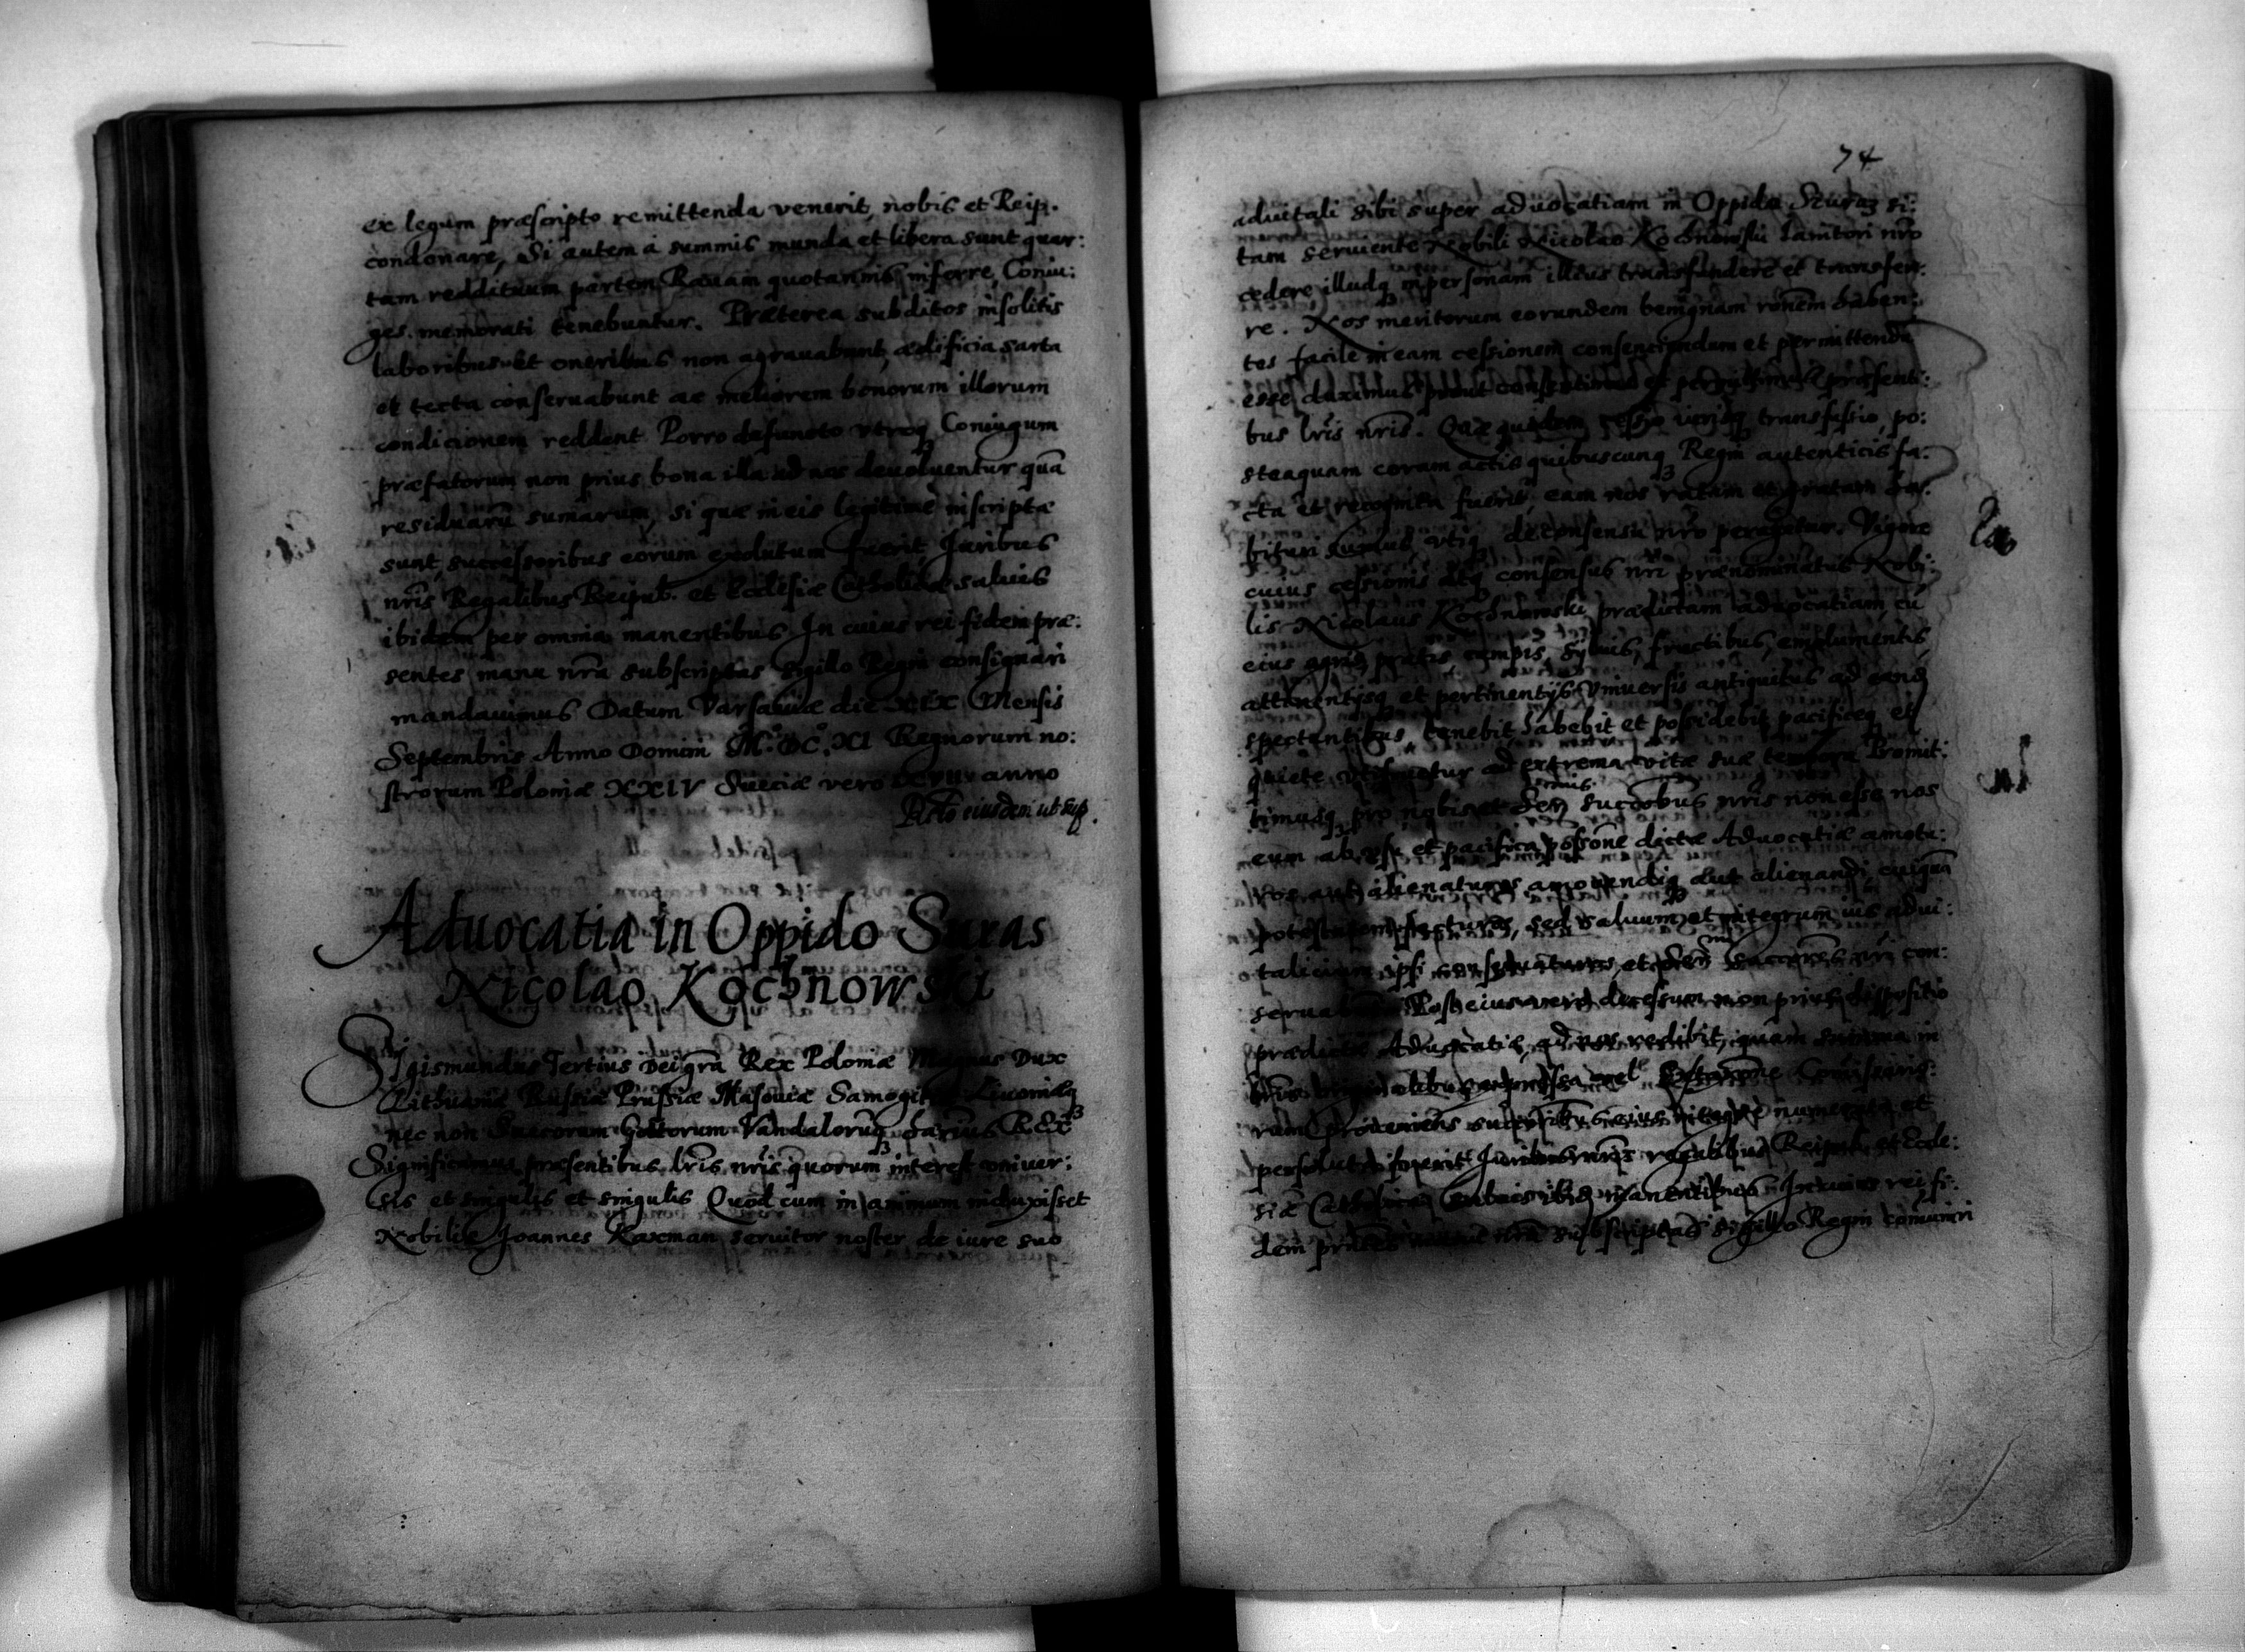 ex legum præscripto remittenda venerit, nobis et Reip.
condonare, Si autem á summis munda et libera sunt quar:
tam reddituum partem Rauam quotannis inferre, Coniu:
ges memorati tenebuntur. Præterea subditos insolitis
laboribus et oneribus non agrauabunt, ædificia sarta
et tecta conseruabunt ac meliorem bonorum illorum
condicionem reddent Porro defuncto vtroq3 Coniugum
præfatorum non prius bona illa ad nos deuoluentur quā
residuarū sumarum, si quæ in eis legitimè inscriptæ
sunt, successoribus eorum exolutum fuerit, Juribus
nris Regalibus Reipub. et Ecclesiæ Catholicæ saluis
ibidem per omnia manentibus In cuius rei fidem præ:
sentes manu nrā subscriptas Sigillo Regni consignari
mandauimus Datum Varsauiæ die XIX Mensis
Septembris Anno Domini Mº DCº XI Regnorum no:
strorum Poloniæ XXIV Sueciæ vero anno
eiusdem ut sup.
Aduocatia in Oppido Suras
Nicolao Kochnowski
Sigismundus Tertius Dei grā Rex Poloniæ Magnus Dux
Lithuaniæ Russiæ Prussiæ Masouiæ Samogitiæ Liuoniæq3
nec non Suecorum Gottorum Vandalorūq3 hærius Rex
Significamus præsentibus lris nris quorum interest vniuer:
sis et singulis et singulis Quod cum in animum induxisset
Nobilis Joannes Kaxman seruitor noster de iure suo
74
aduitali sibi super aduocatiam in Oppido Suraz si:
tam seruiente Nobili Nicolao Kochnowski nrō
cedere, illudq3 in personam illius transfundere et transfer:
re. Nos meritorum eorundem benignam ronem haben:
tes facile in eam cessionem consenciendum et permittendū
esse duximus prout consentimus et permittimus præsenti:
bus lris nris. Quæ quidem cessio iurisq3 transfusio, po:
steaquam coram actis quibuscunq3 Regni autenticis fa:
cta et recognita fuerit, eam nos ratam et gratam ha:
bituri sumus, vtiq3 de consensu nrō peragatur. Vigore
cuius cessionis atq3 consensus nri prænominatus Nobi:
lis Nicolaus Kochnowski prædictam aduocatiam, cū
eius agris pratis, campis, syluis, fructibus, emolumentis,
attinentijsq3 et pertinentijs vniuersis antiquitus ad eand
spectantibus, tenebit habebit et possidebit pacificeq3 et
quiete vtifruetur ad extrema vitæ suæ tempora Promit:
timusq3 pro nobis et Sermis succōbus nris non esse nos
eum ab vsu et pacifica possōne dictæ Aduocatiæ amotu:
ros aut alienaturos amouendiq3 aut alienandi cuiquā
potestatem facturos, sed saluum et integrum ius adui:
talicium ipsi conseruaturos, et Sermi succōres nri con:
seruabūt Post eius vero decessum non prius dispositio
prædictæ Aduocatiæ, ad nos redibit, quam summa in
ram proueniens successoribus eius integrè numerata et
persoluta fuerit Juribus nris regalibus Reipub. et Eccle:
siæ Catholicæ saluis ibid manentibus In cuius rei fi:
dem prntes manu nrā subscriptas sigillo Regni comuniri